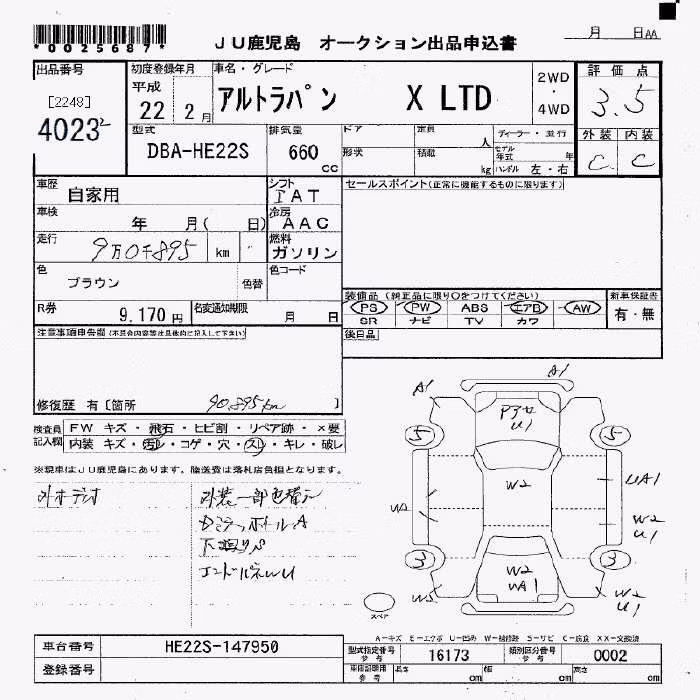 *0025687*
JU鹿児島 オークション出品申込書
月 日AA
出品番号 初度登録年月 車名・グレード 2WD ・ 4WD 評価点
[2248] 平成
4023 22 2月 アルトラパン X LTD 3.5
型式 排気量 ドア 定員 人 ディーラー・並行 外装 内装
DBA-HE22S 660 cc 形状 積載 kg モデル年式 年 ハンドル 左・右 C C
車歴 自家用 シフト IAT セールスポイント(正常に機能するものに限ります)
車検 年 月( 日) 冷房 AAC
走行 9万0千895 km 燃料 ガソリン
色 ブラウン 色替 色コード
R券 9,170円 名変通知期限 月 日
装備品(純正品に限り○をつけてください) 新車保証書
PS PW ABS エアB AW 有・無
SR ナビ TV カワ
注意事項申告欄(不具合内容等は具体的に記入して下さい) 後日品
修復歴 有[箇所 90,895km ]
検査員記入欄 FW キズ・飛石・ヒビ割・リペア跡・×要
内装 キズ・汚れ・コゲ・穴・スレ・キレ・破レ
※現車はJU鹿児島にあります。陸送費は落札店負担となります。
外装一部色替え
A1
A1
Pアセ
U1
5 5
W2
UA1
W2
U1
3 3
W2
UA1
W2
U1
スペア
A-キズ E-エクボ U-凹み W-補修跡 S-サビ C-腐食 XX-交換済
車台番号 HE22S-147950 型式指定番号 参考 16173 類別区分番号 参考 0002
登録番号 車庫証明用 参考 長さ cm 幅 cm 高さ cm